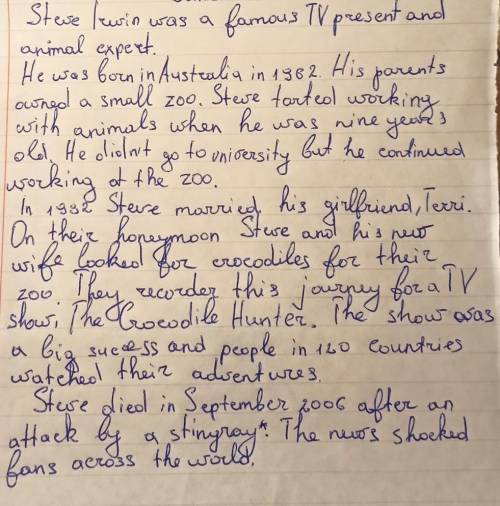 Steve Irwin was a famous TV present and
animal expert.
He was born in Australia in 1962. His parents
owned a small zoo. Steve tarted working
with animals when he was nine years
old. He didn't go to university but he continued
working at the zoo.
In 1992 Steve married his girlfriend, Terri.
On their honeymoon Steve and his new
wife looked for crocodiles for their
zoo. They recorder this journey for a TV
show, The Crocodile Hunter. The show was
a big sucess and people in 120 countries
watched their adventures.
Steve died in September 2006 after an
attack by a stingray*. The news shocked
fans across the world.